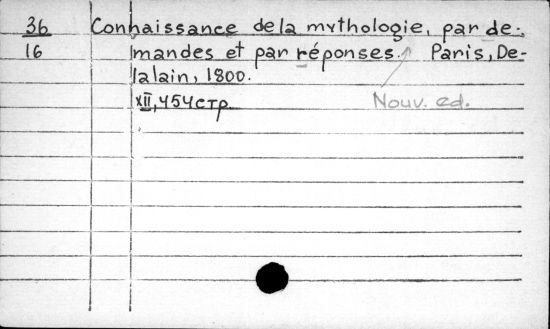 36 Connaissance de la mythologie, par de-
16 mandes et par réponses. Paris, De-
lalain, 1800.
XII, 454 стр.
Nouv. ed.